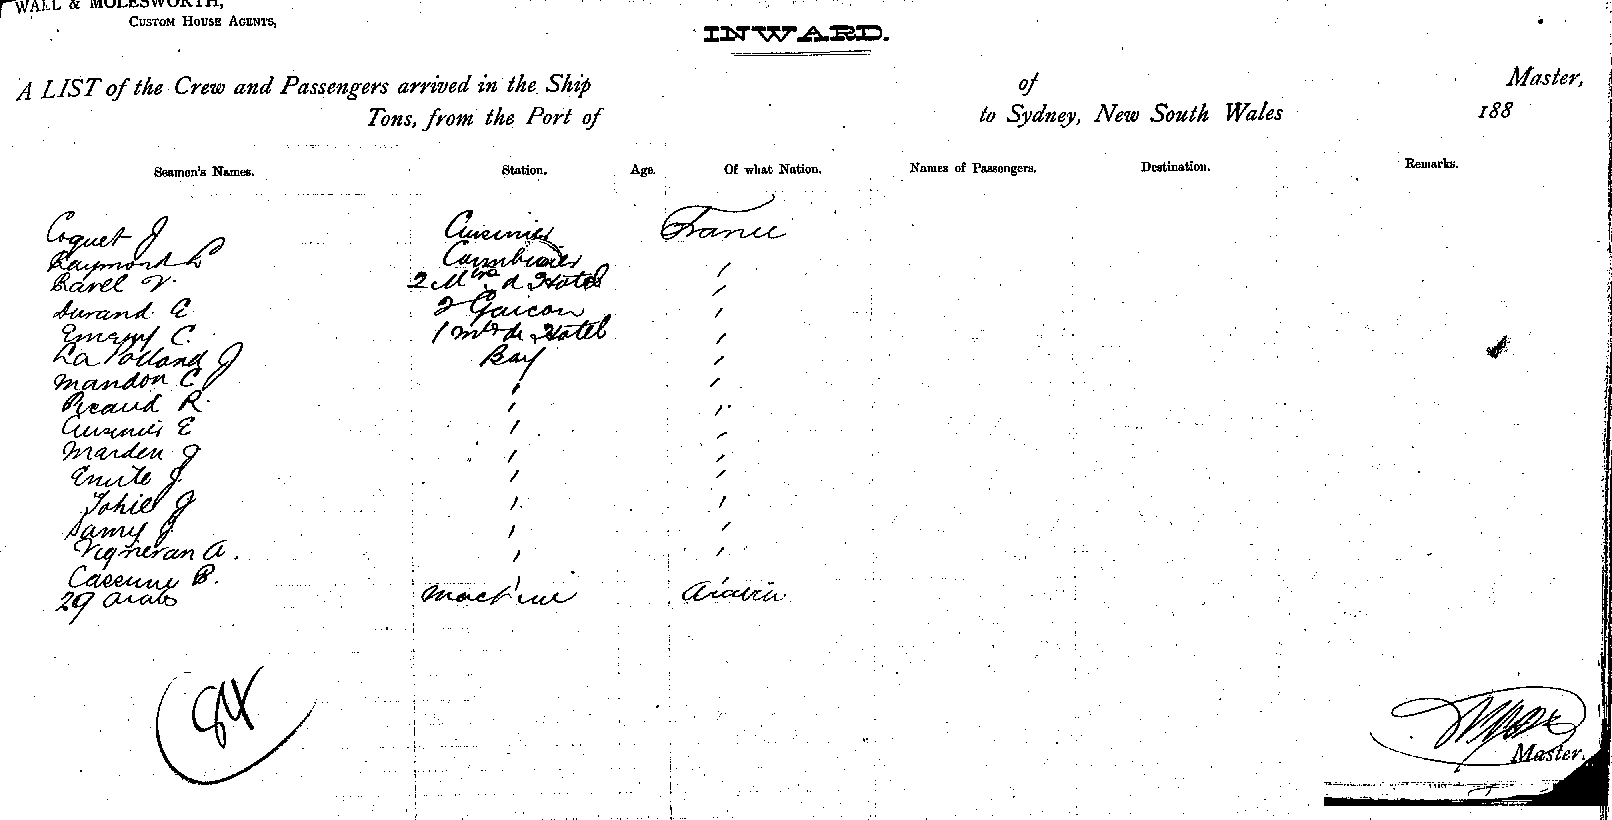 WALL & MOLESWORTH,
CUSTOM HOUSE AGENTS,
INWARD.
A LIST of the Crew and Passengers arrived in the Ship of Master,
Tons, from the Port of to Sydney, New South Wales 188
Seamen's Names. Station. Age. Of what Nation. Names of Passengers. Destination. Remarks.
Coquet J Cuisinier France
Raymond L Cambusier '
Barel V. 2 Mtre d Hotel '
Durand E 2 Garcon '
Emery C. 1 Mtr de Hotel '
J Boy '
Mandon C ' '
Picaud R. ' '
Cuisinier E ' '
Marden J ' '
Emile J. ' '
J ' '
Samy J. ' '
Vigneran A. ' '
B. ' '
29 Arabs Machine Arabia
84
Master.